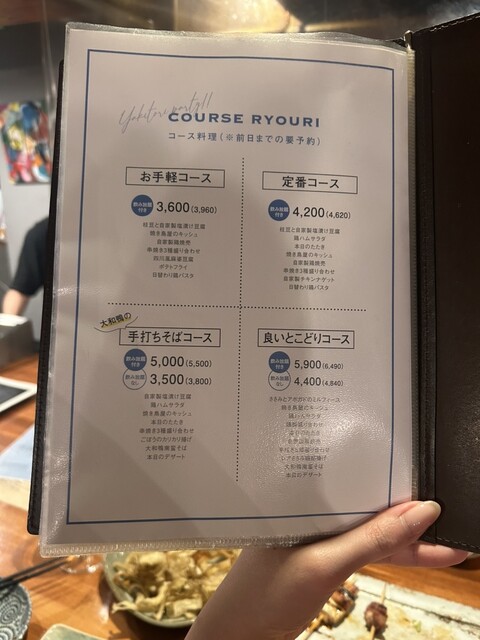 Yakitori party!!
COURSE RYOURI
コース料理(※前日までの要予約)
お手軽コース
飲み放題付き 3,600(3,960)
枝豆と自家製塩漬け豆腐
焼き鳥屋のキッシュ
自家製鶏焼売
串焼き3種盛り合わせ
四川風麻婆豆腐
ポテトフライ
日替わり鶏パスタ
定番コース
飲み放題付き 4,200(4,620)
枝豆と自家製塩漬け豆腐
鶏ハムサラダ
本日のたたき
焼き鳥屋のキッシュ
自家製鶏焼売
串焼き3種盛り合わせ
自家製チキンナゲット
日替わり鶏パスタ
大和鴨の
手打ちそばコース
飲み放題付き 5,000(5,500)
飲み放題なし 3,500(3,800)
自家製塩漬け豆腐
鶏ハムサラダ
焼き鳥屋のキッシュ
本日のたたき
串焼き3種盛り合わせ
ごぼうのカリカリ揚げ
大和鴨南蛮そば
本日のデザート
良いとこどりコース
飲み放題付き 5,900(6,490)
飲み放題なし 4,400(4,840)
ささみとアボカドのミルフィーユ
焼き鳥屋のキッシュ
鶏ハムサラダ
本日のたたき
自家製鶏焼売
大和鴨南蛮そば
本日のデザート